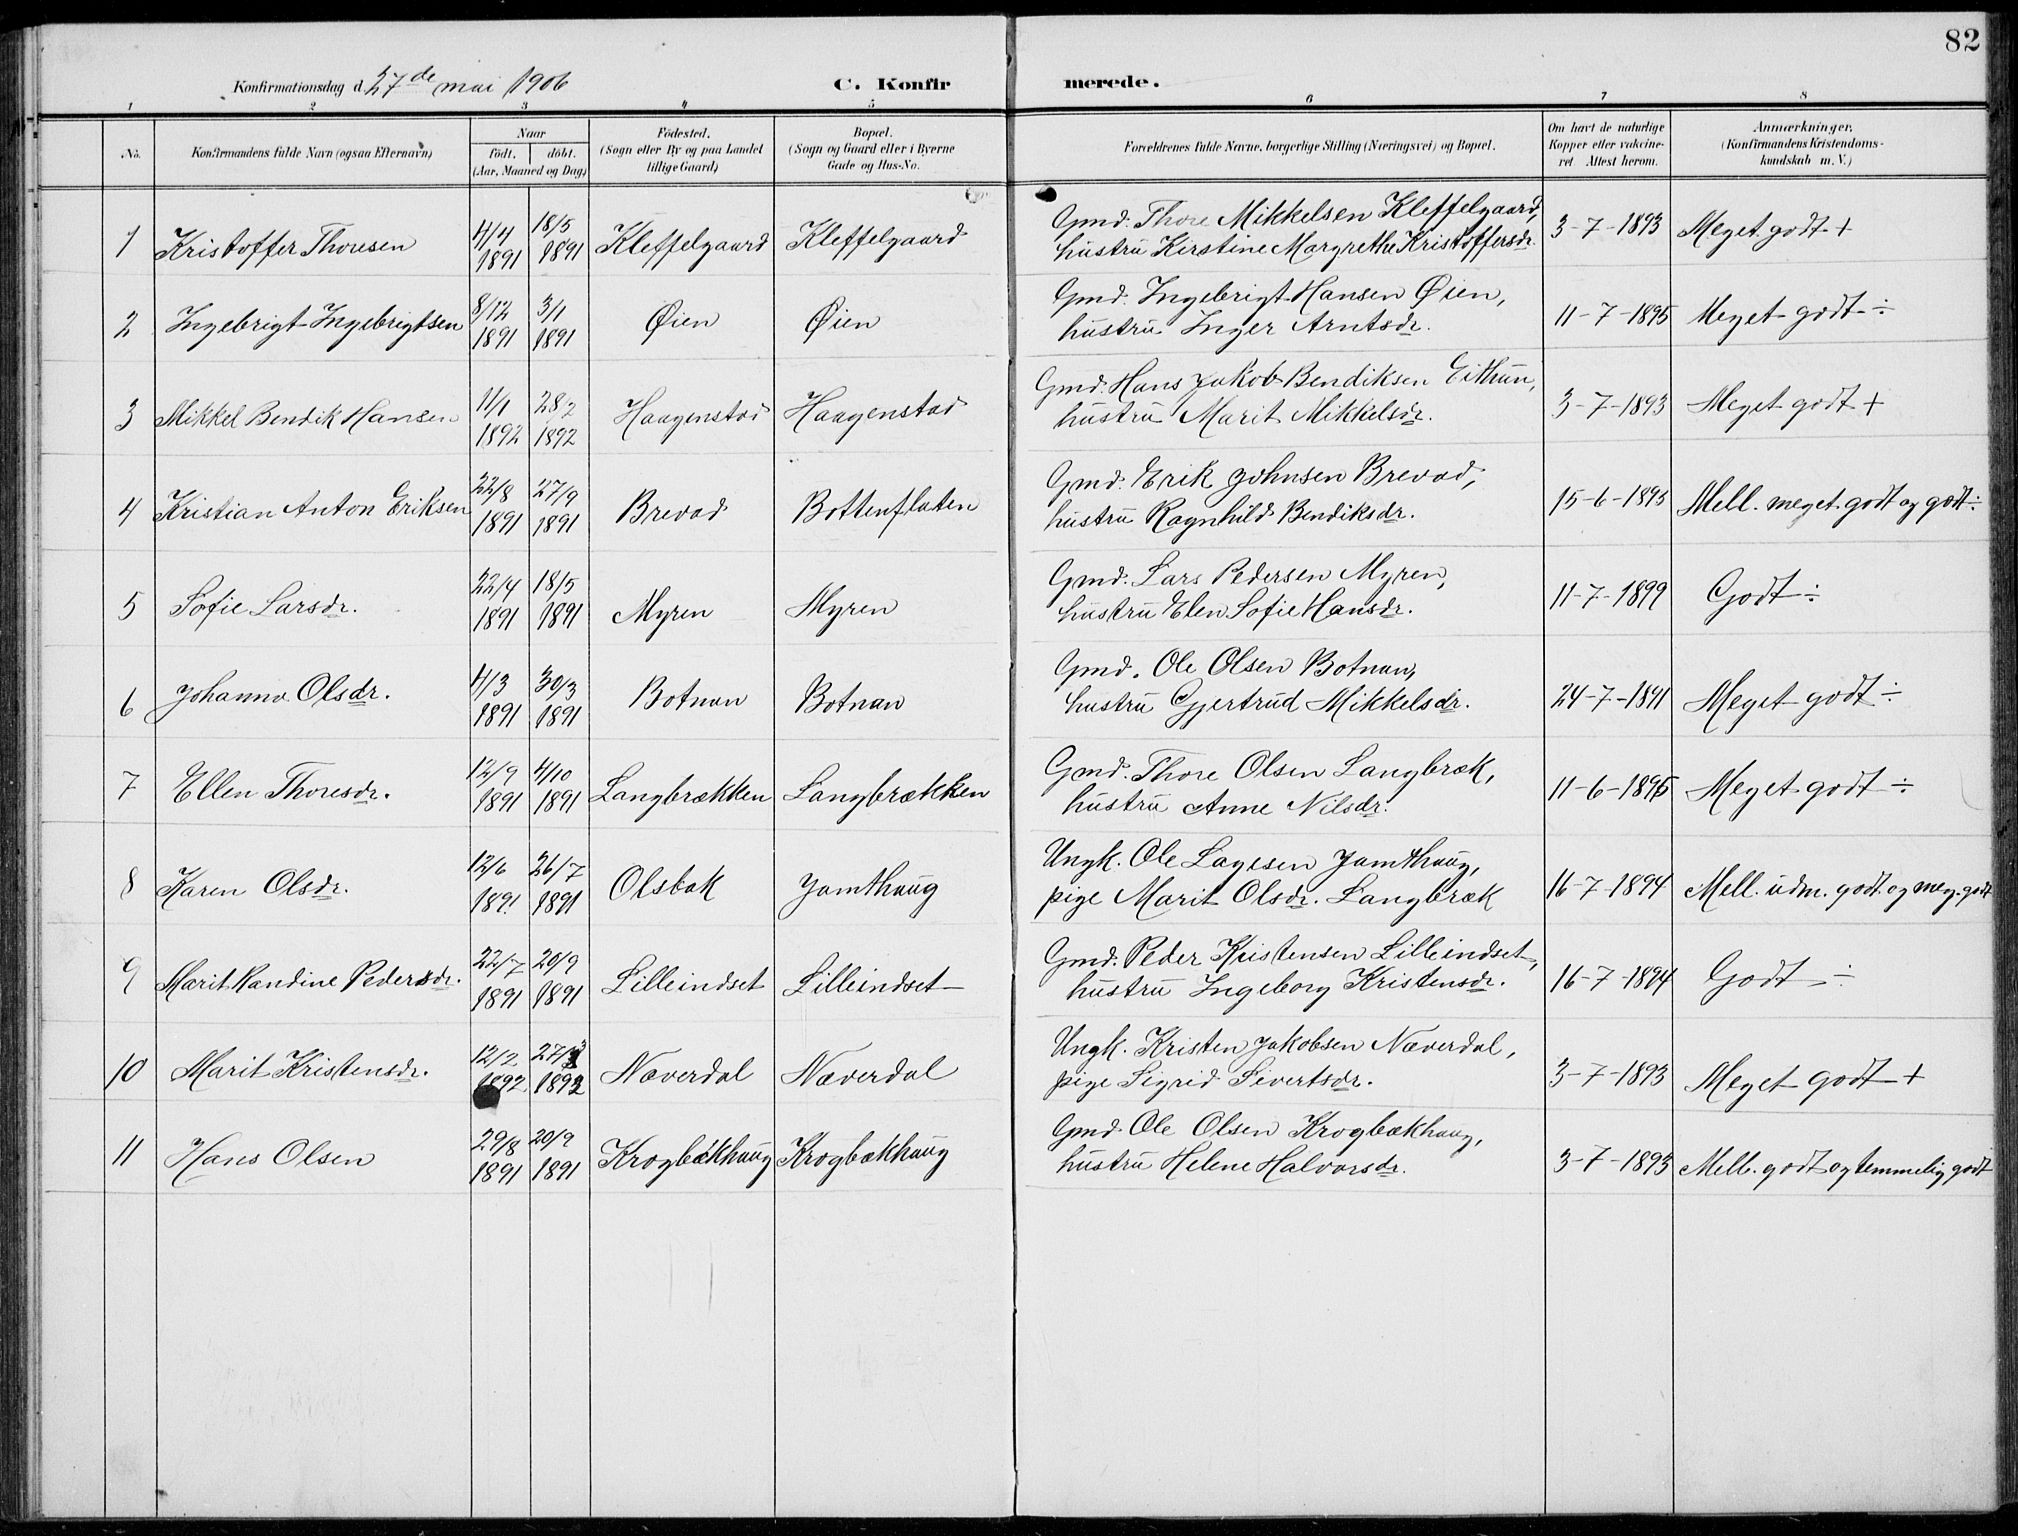 82
Konfirmationsdag d. 27de mai 1906 C. Konfirmerede.
1 2 3 4 5 6 7 8
No. Konfirmandens fulde Navn (ogsaa Efternavn) Naar født. døbt. (Aar, Maaned og Dag) Födested. (Sogn eller By og paa Landet tillige Gaard) Bopæl. (Sogn og Gaard eller i Byerne Gade og Hus-No. Forældrenes fulde Navne, borgerlige Stilling (Næringsvei) og Bopæl. Om havt de naturlige Kopper eller vakcineret Attest herom. Anmærkninger, (Konfirmandens Kristendomskundskab m. V.)
1 Kristoffer Thoresen 4/4 1891 18/5 1891 Kleffelgaard Kleffelgaard Gmd. Thore Mikkelsen Kleffelgaard, hustru Kirstine Margrethe Kristoffersdr. 3-7-1893 Meget godt +
2 Ingebrigt Ingebrigtsen 8/12 1891 3/1 1891 Øien Øien Gmd. Ingebrigt Hansen Øien, hustru Inger Arntsdr. 11-7-1895 Meget godt ÷
3 Mikkel Bendik Hansen 11/1 1892 28/2 1892 Haagenstad Haagenstad Gmd. Hans Jakob Bendiksen Eithun, hustru Marit Mikkelsdr. 3-7-1893 Meget godt +
4 Kristian Anton Eriksen 22/8 1891 27/9 1891 Brevad Bottenflaten Gmd. Erik Johnsen Brevad, hustru Ragnhild Bendiksdr. 15-6-1893 Mell. meget godt og godt ÷
5 Sofie Larsdr. 22/4 1891 18/5 1891 Myren Myren Gmd. Lars Pedersen Myren, hustru Elen Sofie Hansdr. 11-7-1899 Godt ÷
6 Johanna Olsdr. 4/3 1891 30/3 1891 Botnan Botnan Gmd. Ole Olsen Botnan, hustru Gjertrud Mikkelsdr. 24-7-1891 Meget godt ÷
7 Ellen Thoresdr. 12/9 1891 4/10 1891 Langbrækken Langbrækken Gmd. Thore Olsen Langbræk, hustru Anne Nilsdr. 11-6-1895 Meget godt ÷
8 Karen Olsdr. 12/6 1891 26/7 1891 Olsbak Jamthaug Ungk. Ole Lagesen Jamthaug, pige Marit Olsdr. Langbræk 16-7-1894 Mell. udm. godt og meg. godt
9 Marit Randine Pedersdr. 22/7 1891 20/9 1891 Lilleindset Lilleindset Gmd. Peder Kristensen Lilleindset, hustru Ingeborg Kristensdr. 16-7-1894 Godt ÷
10 Marit Kristensdr. 12/2 1892 27/3 1892 Næverdal Næverdal Ungk. Kristen Jakobsen Næverdal, pige Sigrid Sivertsdr. 3-7-1893 Meget godt +
11 Hans Olsen 29/8 1891 20/9 1891 Krogbækhaug Krogbækhaug Gmd. Ole Olsen Krogbækhaug, hustru Helene Halvorsdr. 3-7-1893 Mell. godt og temmelig godt